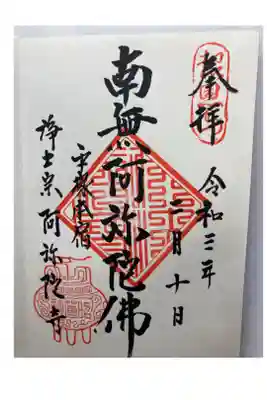 奉拝
令和三年
二月十日
南無阿弥陀佛
浄土宗阿弥陀寺